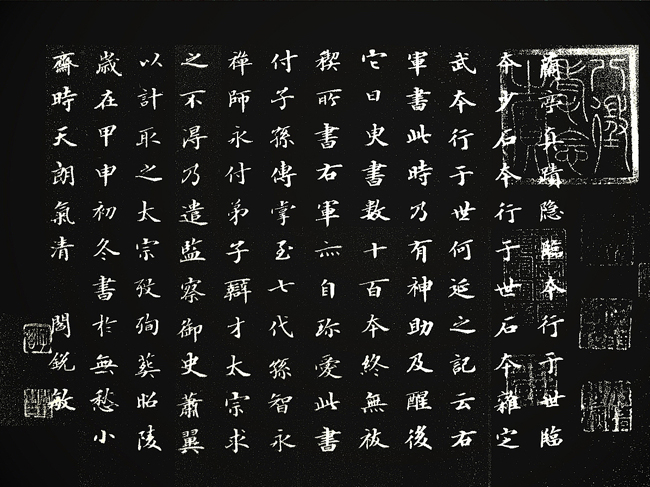 蘭亭真蹟隐臨本行于世臨
本少石本行于世石本雜定
武本行于世何延之記云右
軍書此時乃有神助及醒後
它日更書數十百本終無祓
禊所書右軍亦自珍愛此書
付子孫傳掌至七代孫智永
禪師永付弟子辯才太宗求
之不得乃遣監察御史蕭翼
以計取之太宗歿殉葬昭陵
歲在甲申初冬書於無愁小
齋時天朗氣清 閻銳敏